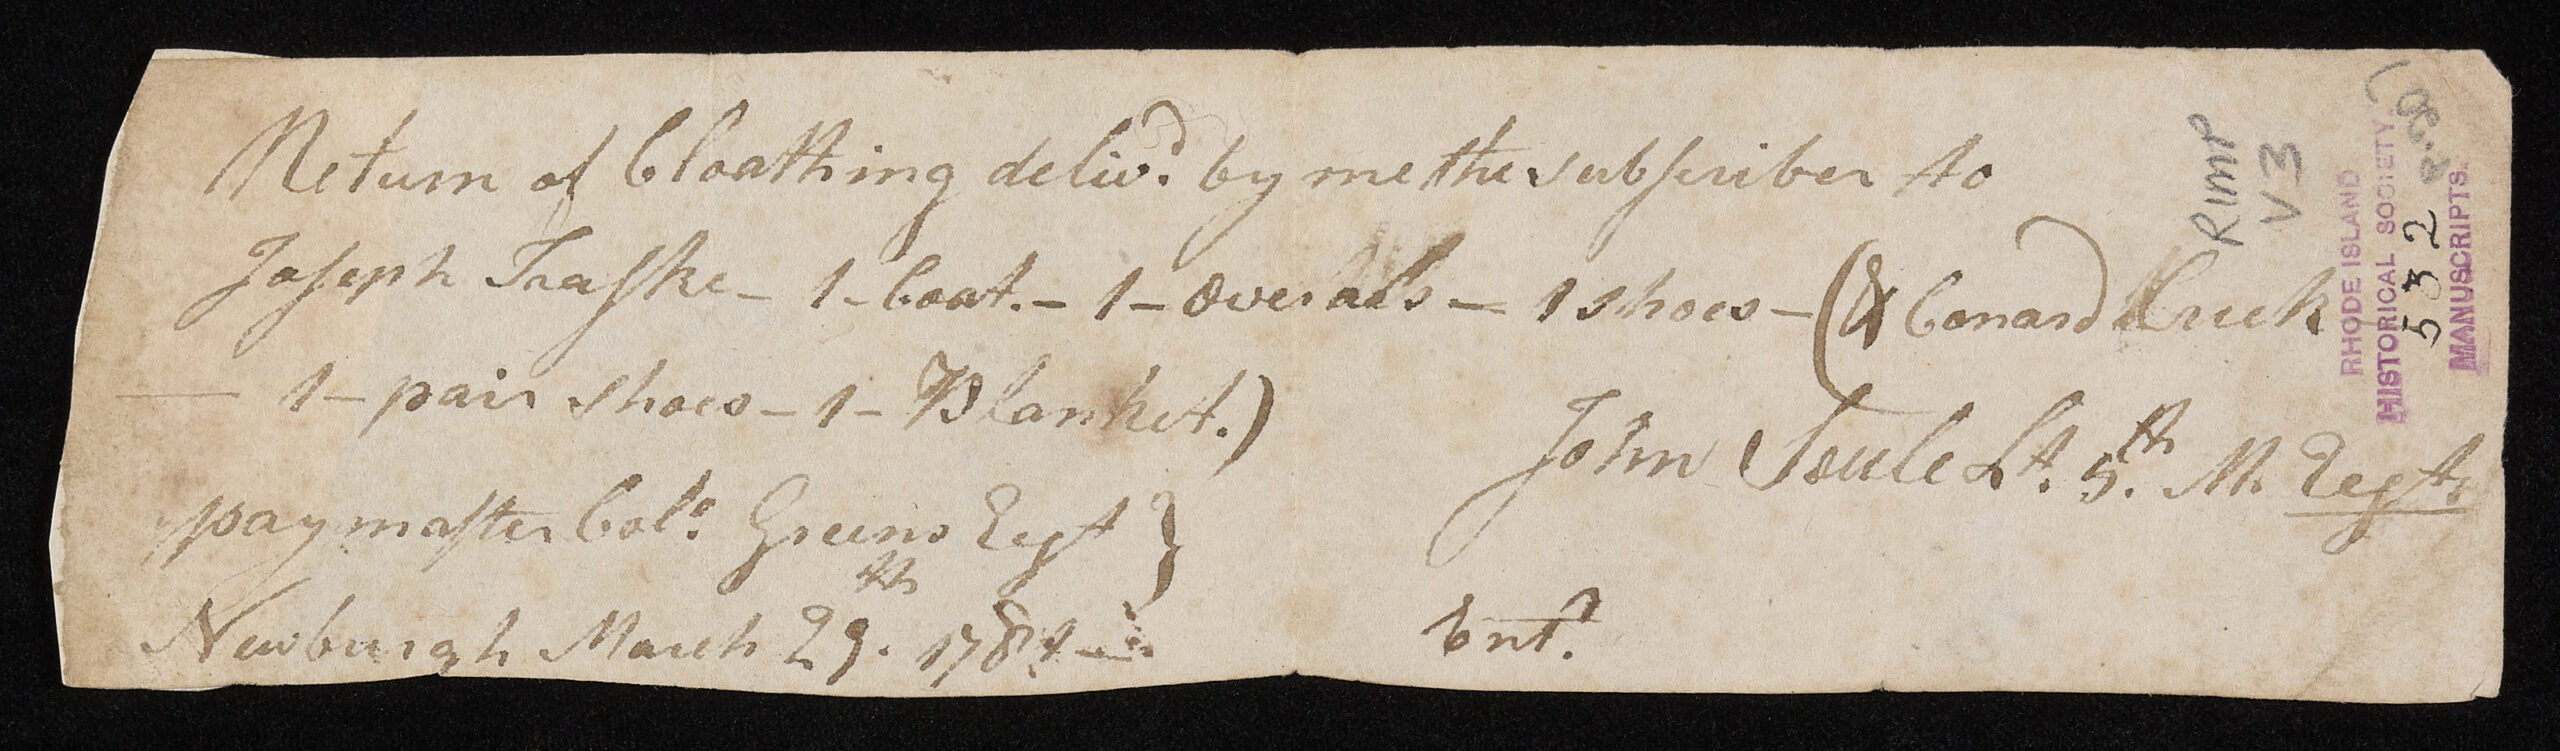 Return of Cloathing deliv.d by me the subscriber to
Joseph Traske - 1 - Coat. - 1 - Overalls - 1 shoes - (& Conard Crick
— 1 - pair shoes - 1 - Blanket.)
John Soule Lt. 5.th M. Regt.
paymaster Col.o Greens Regt }
Newburgh March 29.th 1781 -
Ent.d
RIMP
V 3
RHODE ISLAND
HISTORICAL SOCIETY.
532
MANUSCRIPTS.